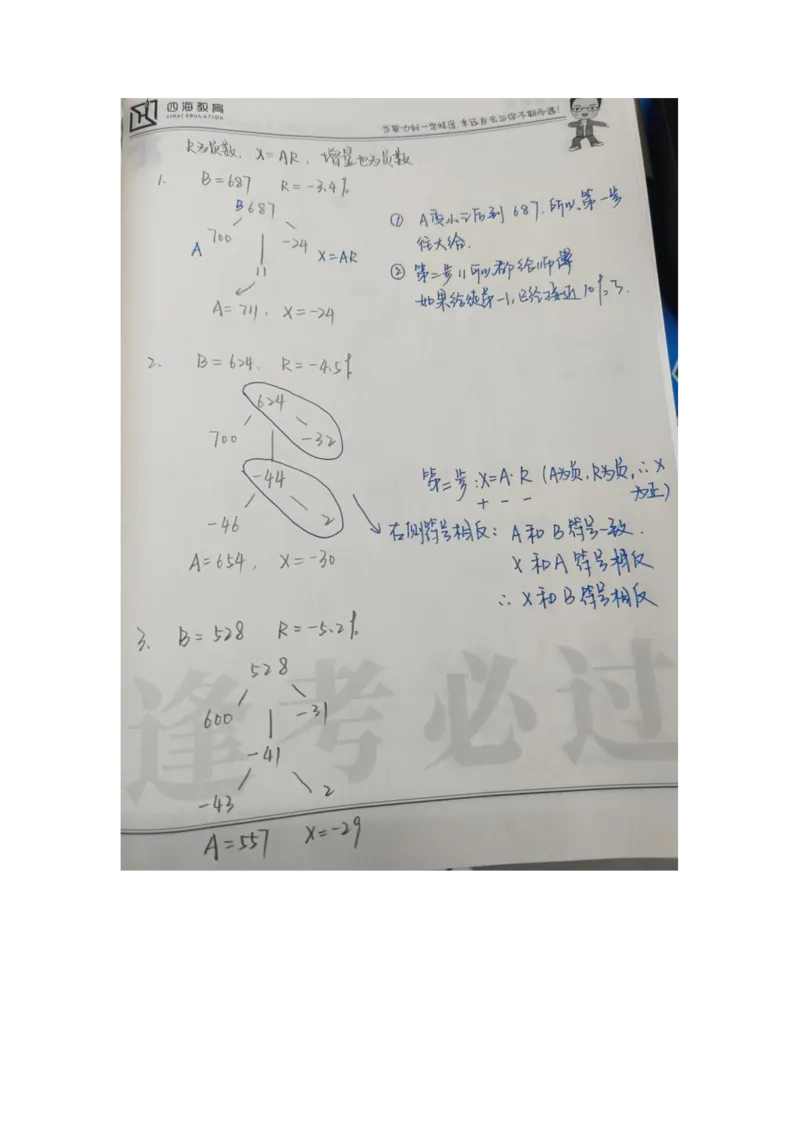 四海教育
SIHAI EDUCATION
R为负数, X=AR, 增量也为负数
1. B=687 R=-3.4%
B 687
A 700 -24 X=AR
11
A=711, X=-24
① A变小之后到687, 所以第一步
往大给.
② 第二步11所以都给师傅
如果给徒弟-1, 已经接近10%了.
2. B=624. R=-4.5%
624
700 -32
-44
-46 2
A=654, X=-30
第二步:X=A·R (A为负,R为负,∴X
为正)
+ - -
右侧符号相反: A和B符号一致.
X和A符号相反
∴ X和B符号相反
3. B=528 R=-5.2%
528
600 -31
-41
-43 2
A=557 X=-29
逢考必过